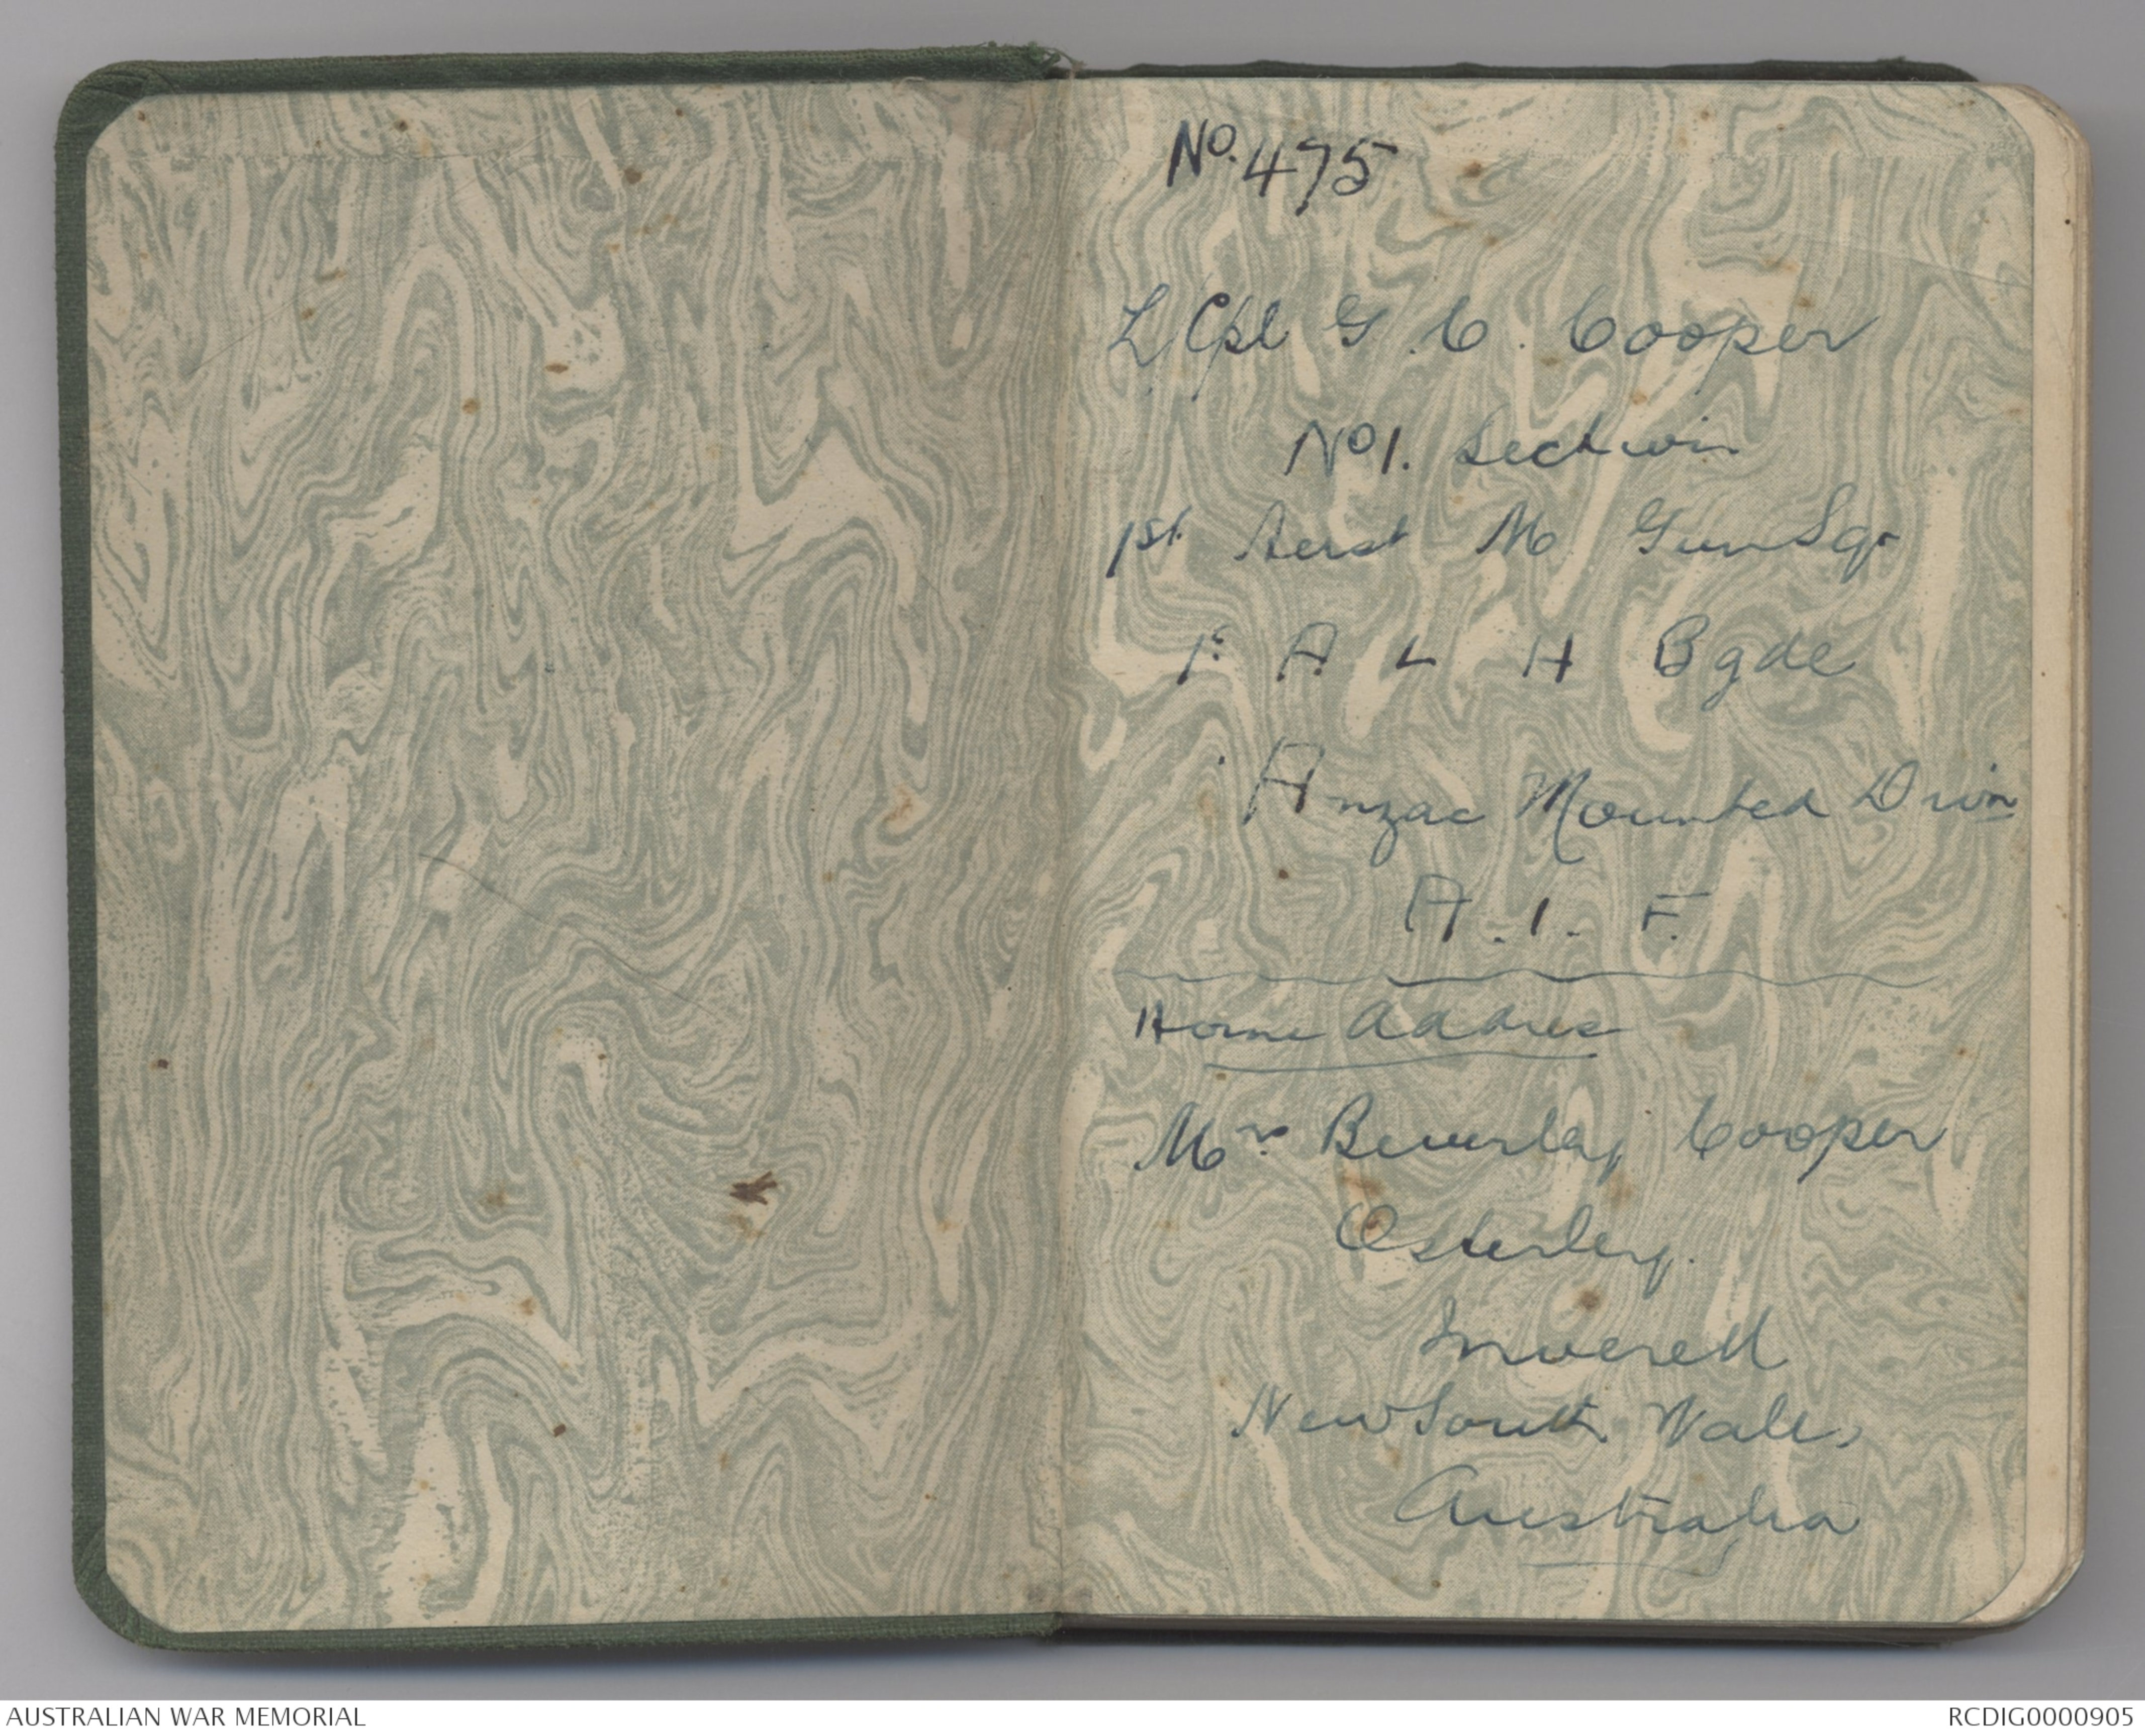 No. 475
L/Cpl G. C. Cooper
No 1. Section
1st Aust M Gun Sqn
1st A L H Bgde
Anzac Mounted Divn
A. I. F.
Home Address
Mrs Beverley Cooper
Osterley.
Inverell
New South Wales
Australia
AUSTRALIAN WAR MEMORIAL
RCDIG0000905